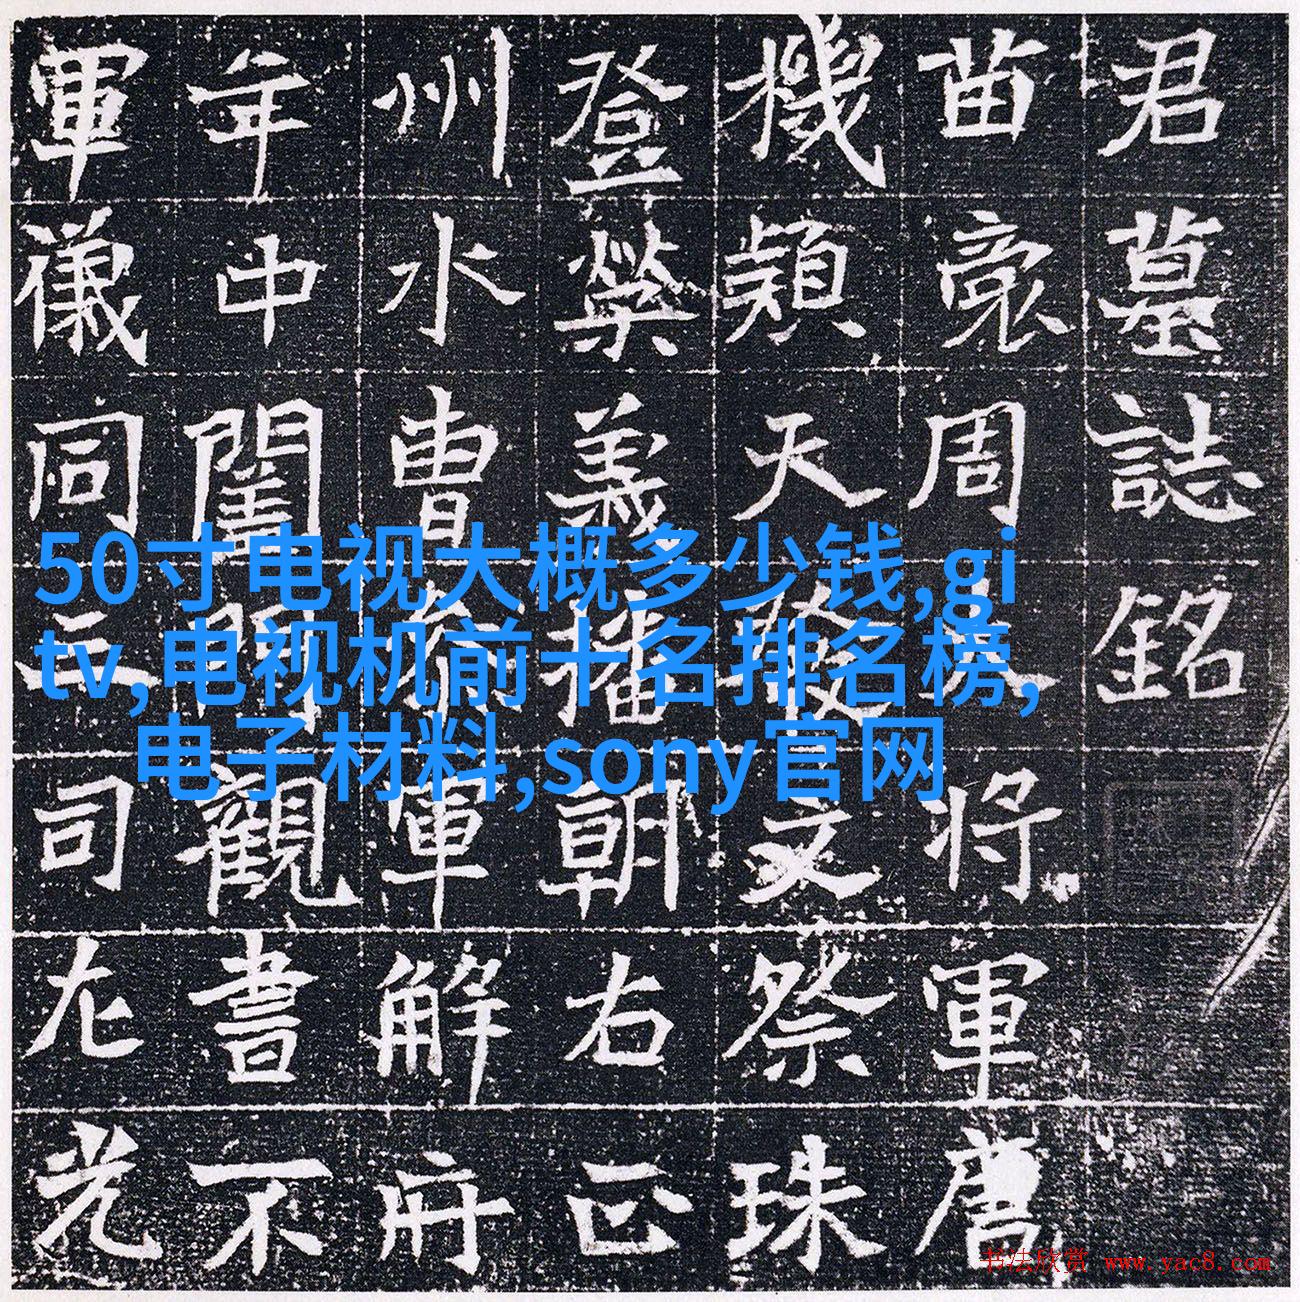 君墓誌銘
苗裔周大将軍
機穎天發文祭珠
登榮義播朝右正
州水曹参軍解府
年中閨門觀書不
軍儀同三司左光
50寸电视大概多少钱,gi
tv,电视机前十名排名榜,
电子材料,sony官网
书法欣赏 www.yac8.com